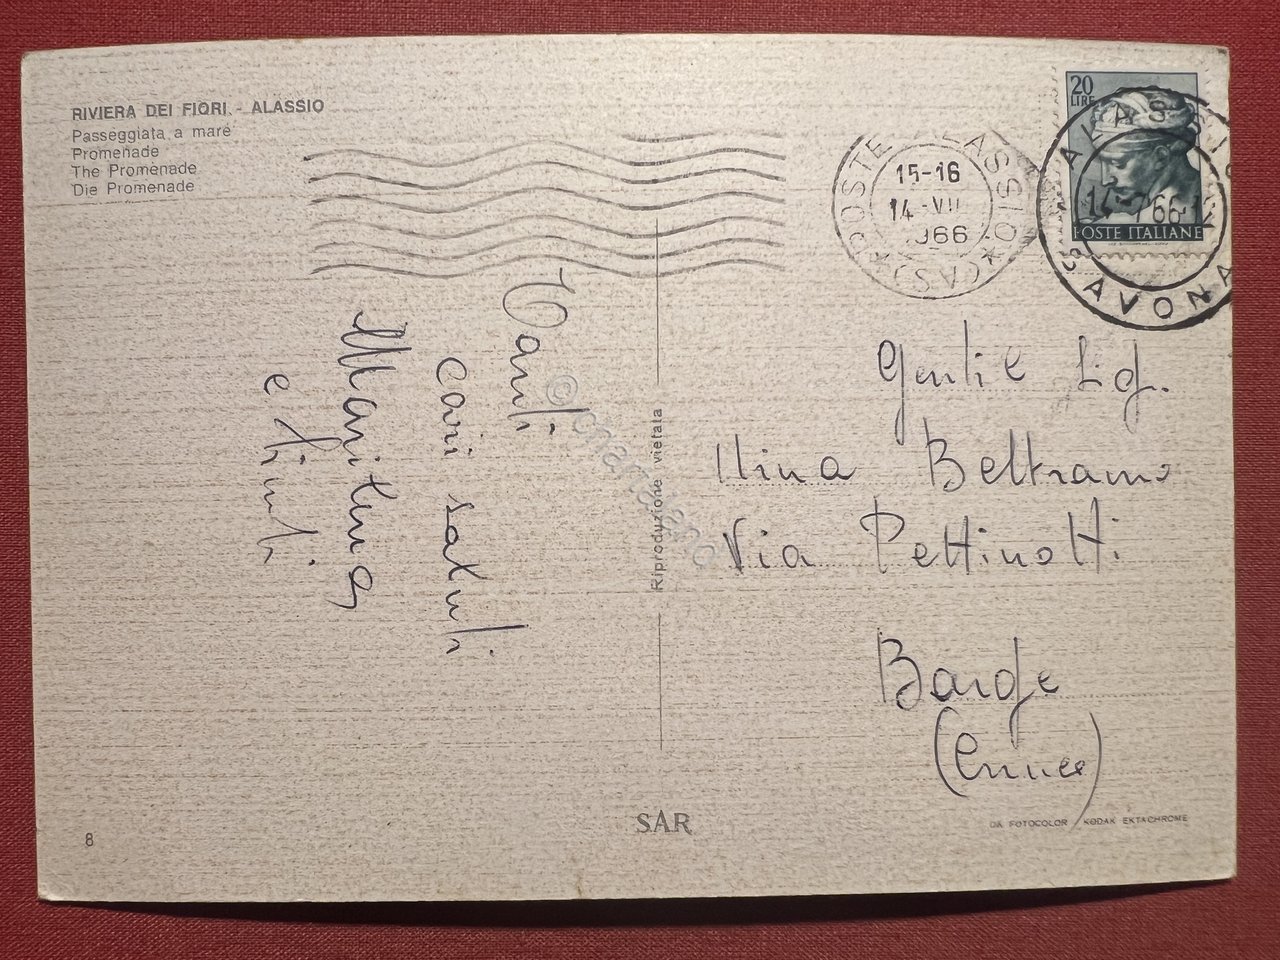 RIVIERA DEI FIORI - ALASSIO
Passeggiata a mare
Promenade
The Promenade
Die Promenade
POSTE ALASSIO
15-16
14-VII
1966
(SV)
20
LIRE
POSTE ITALIANE
ALASSIO
14-7-66-1
SAVONA
Tanti
cari saluti
Maritena
e
Gentile Sig.
Nina Beltramo
Via Pettinotti
Barge
(Cuneo)
Riproduzione vietata
© chartaland
SAR
8
DA FOTOCOLOR KODAK EKTACHROME